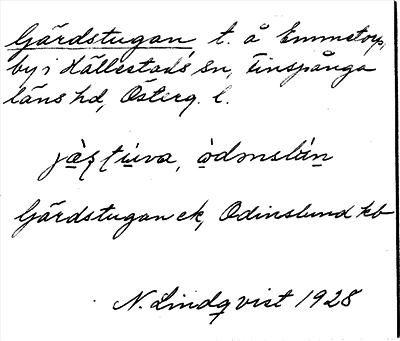 Gärdstugan, t. å Emmetorp,
by i Hällestads sn, Finspånga
läns hd, Österg. l.
Gärdstugan ek, Odinslund kb
N. Lindqvist 1928